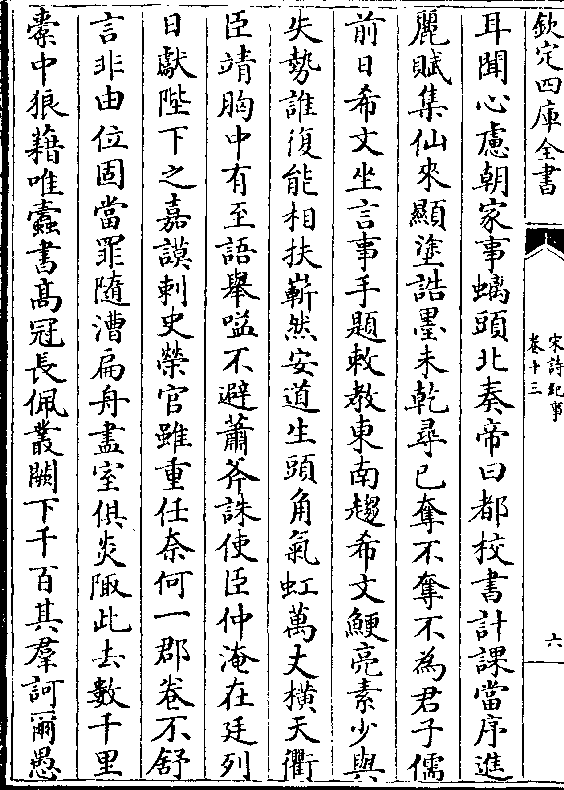 欽定四庫全書
宋詩紀事
卷十三
六
耳聞心慮朝家事螭頭北奏帝曰都校書計課當序進
麗賦集仙來顯塗誥墨未乾尋已奪不奪不為君子儒
前日希文坐言事手題敕教東南趨希文鯁亮素少與
失勢誰復能相扶嶄然安道生頭角氣虹萬丈橫天衢
臣靖胸中有至語舉嗌不避蕭斧誅使臣仲淹在廷列
日獻陛下之嘉謨刺史榮官雖重任奈何一郡卷不舒
言非由位固當罪隨漕扁舟盡室俱炎陬此去數千里
橐中狼藉唯蠹書髙冠長佩叢闕下千百其羣訶爾愚